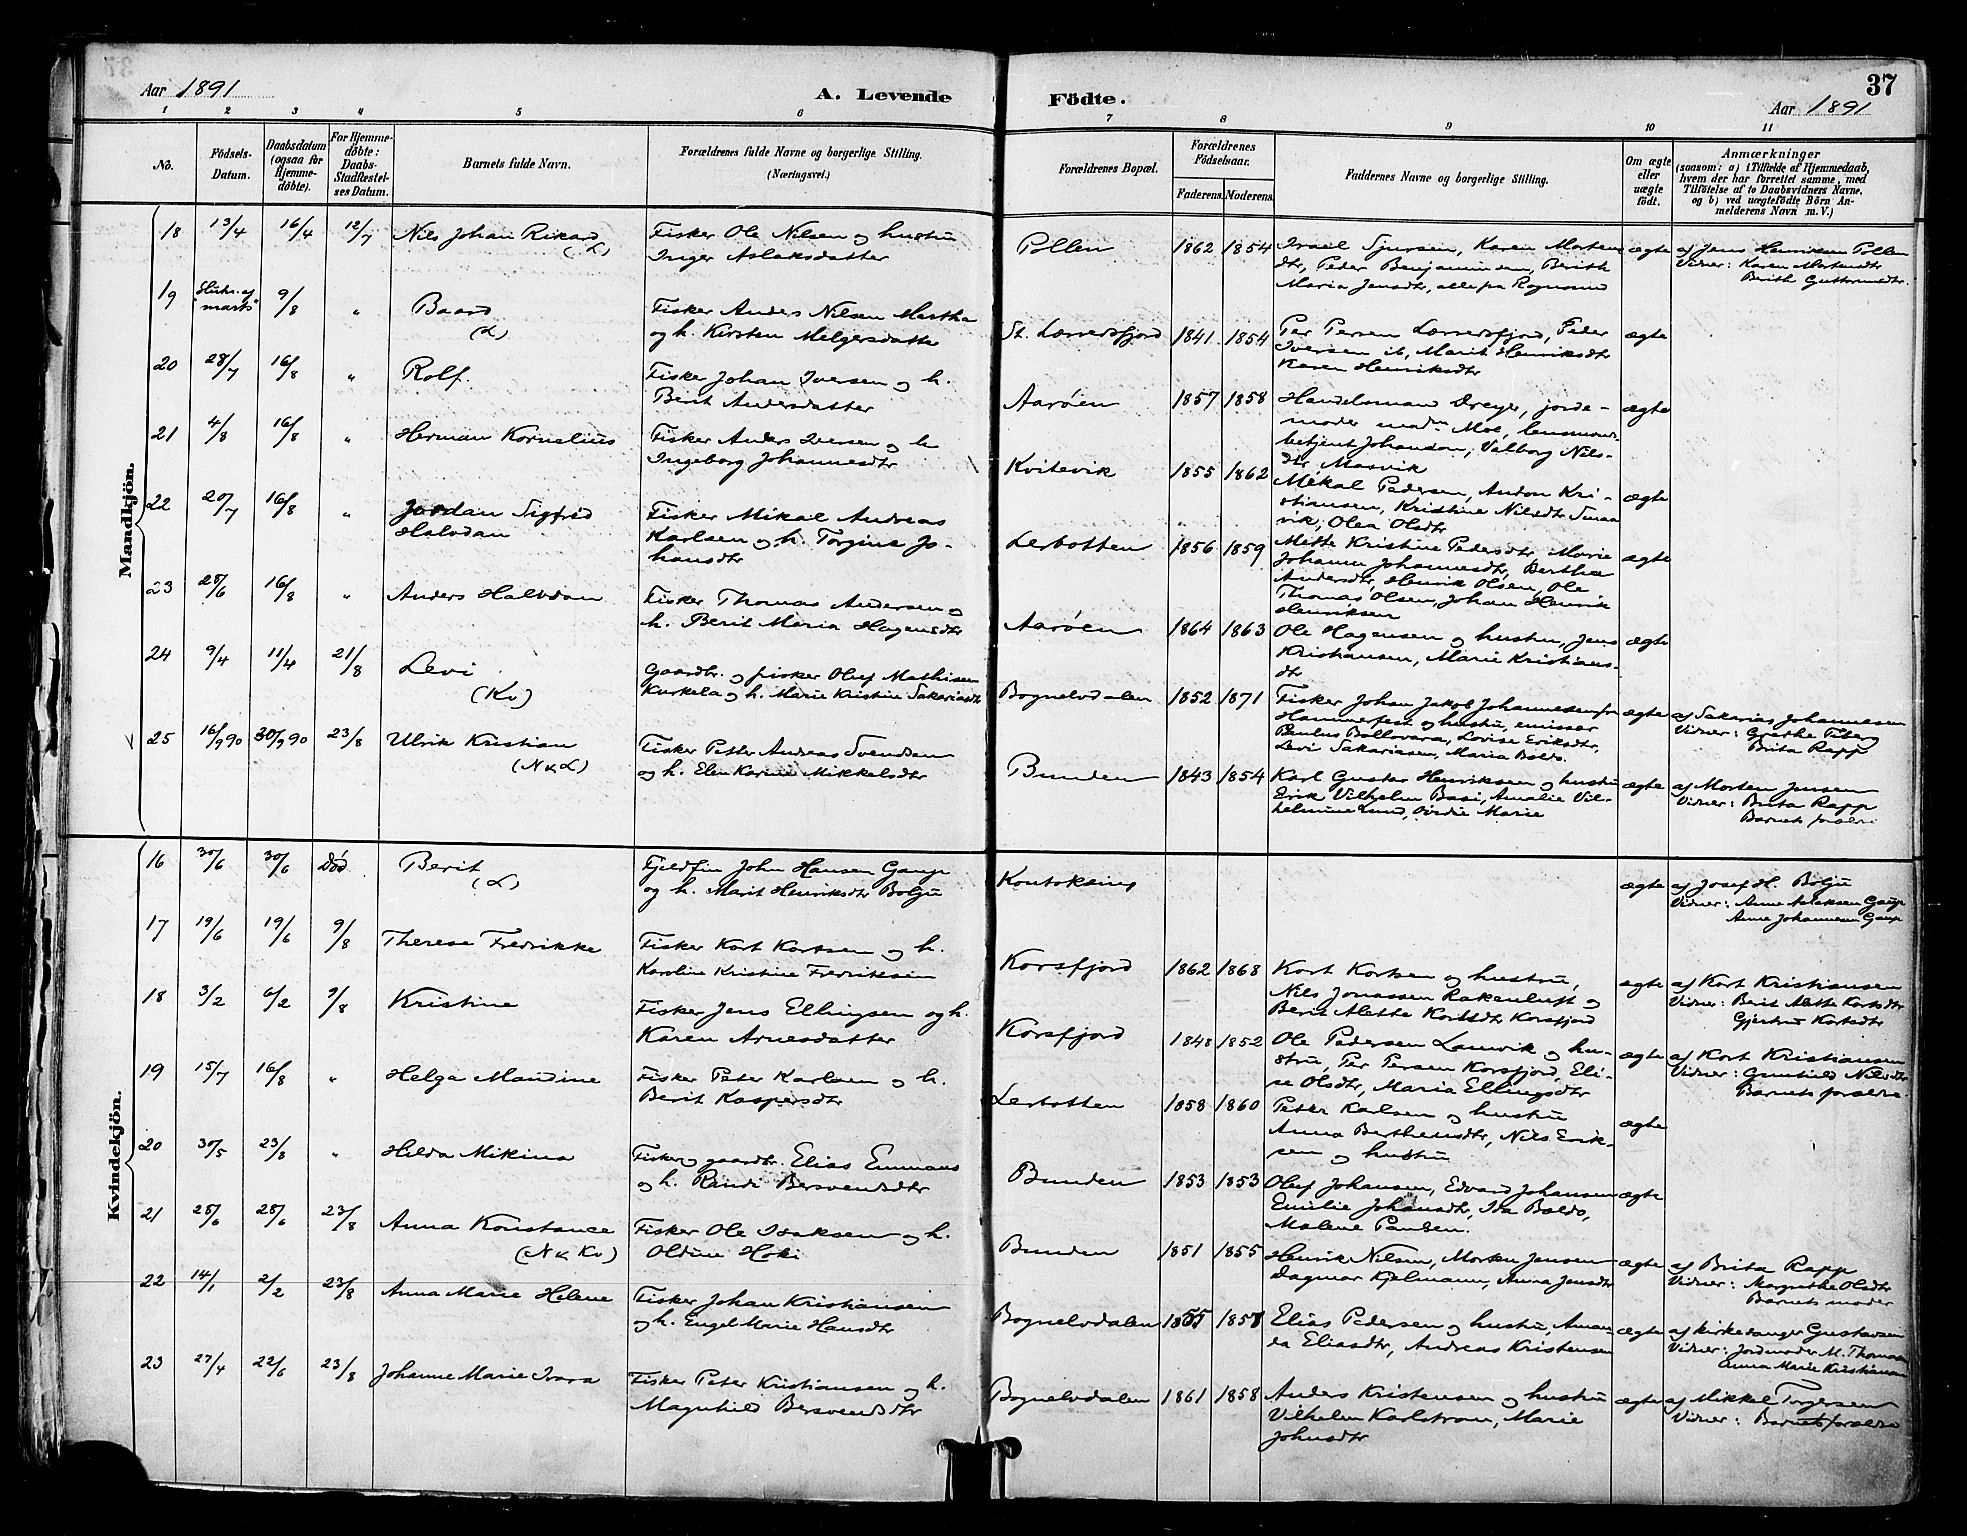 37
Aar 1891
A. Levende
Födte.
Aar 1891
1 2 3 4 5 6
7 8 9 10 11
No.
Födsels-
Datum.
Daabsdatum
(ogsaa for
Hjemme-
döbte).
For Hjemme-
döbte:
Daabs-
Stadfæstel-
ses Datum.
Barnets fulde Navn.
Forældrenes fulde Navne og borgerlige Stilling.
(Næringsvei.)
Forældrenes Bopæl.
Forældrenes
Födselsaar.
Faderens. Moderens.
Faddernes Navne og borgerlige Stilling.
Om ægte
eller
uægte
født.
Anmærkninger
(saasom: a) i Tilfælde af Hjemmedaab,
hvem der har forrettet samme, med
Tilföielse af to Daabsvidners Navne,
og b) ved uægtefödte Börn An-
melderens Navn m. V.)
Mandkjön.
18 13/4 16/4 12/7 Nils Johan Rikard
(L)
Fisker Ole Nilsen og hustru
Inger Aslaksdatter
Pollen 1862 1854
Israel Sjursen, Karen Mortens
dtr, Peder Benjaminsen, Berith
Maria Jensdtr, alle fra Rognsund
ægte
af Jens Henriksen Pollen
Vidner: Karen Mortensdtr
Berith Guttormsdtr.
19 Slutn. af
"marts" 9/8 " Baard
(L)
Fisker Anders Nilsen Martha
og h. Kirsten Melgersdatter
St. Lerresfjord 1841 1854
Per Persen Lerresfjord, Peder
Iversen ib, Marit Henriksdtr
Karen Henriksdtr
ægte
20 28/7 16/8 " Rolf.
Fisker Johan Iversen og h.
Berit Andersdatter
Aarøen 1857 1858
Handelsmand Dreyer, jorde-
moder madm Moe, lensmands
betjent Johansen, Valborg Nils-
dtr Masvik
ægte
21 4/8 16/8 " Herman Kornelius
Fisker Anders Iversen og h
Ingeborg Johannesdtr
Kvitevik 1855 1862
Mikal Pedersen, Anton Kri-
stiansen, Kristine Nilsdtr Smaa
vik, Olea Olsdtr
ægte
22 20/7 16/8 " Jordan Sigfred
Halvdan
Fisker Mikail Andreas
Karlsen og h. Torgine Jo-
hansdtr
Lerbotten 1856 1859
Mette Kristine Pedersdtr, Marie
Johanna Johannesdtr, Berthea
Andersdtr, Henrik Olsen, Ole
Thomas Olsen, Johan Henrik
Henriksen
ægte
23 28/6 16/8 " Anders Halvdan
Fisker Thomas Andersen og
h. Berit Maria Hagensdtr
Aarøen 1864 1863
Ole Hagensen og hustru, Jens
Kristiansen, Marie Kristians-
dtr
ægte
24 9/4 11/4 21/8 Levi
(Kv)
Gaardbr. og fisker Oluf Mathisen
Kurkela og h. Marie Kristine Sakariasdtr
Bognelvdalen 1852 1871
Fisker Johan Jakob Johannesen fra
Hammerfest og hustru, emissær
Paulus Ballovara, Lovise Eriksdtr,
Levi Sakariassen, Maria Baldo.
ægte
af Sakarias Johannesen
Vidner: Grethe Fiberg
Brita Rapp
25 16/9 90 30/9 90 23/8 Ulrik Kristian
(N & L)
Fisker Petter Andreas Svendsen
og h. Elen Karine Mikkelsdtr
Bunden 1843 1854
Karl Gustav Henriksen og hustru
Erik Vilhelm Basi, Amalie Vil-
helmine Lund, Ovidie Marie
ægte
af Morten Jensen
Vidner: Brita Rapp
Barnets forældre
Kvindekjön.
16 30/6 30/6 Død Berit
(L)
Fjeldfin John Hansen Gaup
og h. Marit Henriksdtr Bolju
Koutokeino
ægte
af Josef H. Bolju
Vidner: Anne Aslaksen Gaup
Anne Johannesen Gaup
17 19/6 19/6 9/8 Therese Fredrikke
Fisker Kort Kortsen og h.
Karoline Kristine Fredriksen
Korsfjord 1862 1868
Kort Kortsen og hustru,
Nils Jonassen Rakenluft og
Berit Alette Kortsdtr Korsfjord
ægte
af Kort Kristiansen
Vidner: Berit Alette Kortsdtr
Gjertrud Kortsdtr
18 3/2 6/2 9/8 Kristine
Fisker Jens Ellingsen og h.
Karen Arnesdatter
Korsfjord 1848 1852
Ole Pedersen Lamvik og hu-
stru, Per Persen Korsfjord, Eli-
se Olsdtr, Maria Ellingsdtr
ægte
af Kort Kristiansen
Vidner: Gunhild Nilsdtr
Barnets forældre.
19 15/7 16/8 " Helga Mandine
Fisker Peter Karlsen og h.
Berit Kaspersdtr
Lerbotten 1858 1860
Petter Karlsen og hustru
Anna Berthensdtr, Nils Erik-
sen og hustru
ægte
20 30/5 23/8 " Hilda Mikina
Fisker og gaardbr. Elias Emmaus
og h. Randi Bersvendsdtr
Bunden 1853 1853
Oluf Johansen, Edvard Johansen
Emilie Johansdtr, Ida Baldo,
Malene Paulsen.
ægte
21 28/6 28/6 23/8 Anna Konstance
(N & Kv)
Fisker Ole Isaksen og h.
Oldine Hoki
Bunden 1851 1855
Henrik Nilsen, Morten Jensen
Dagmar Kjelmann, Anna Jensdtr
ægte
af Brita Rapp
Vidner: Magrethe Olsdtr
Barnets moder
22 14/1 2/2 23/8 Anna Marie Helene
Fisker Johan Kristiansen
og h. Engel Marie Hansdtr
Bognelvdalen 1855 1857
Elias Pedersen og hustru, Aman-
da Eliasdtr, Andreas Kristensen
ægte
af kirkesanger Gustavsen
Vidner: Jordmoder M. Thomasen
Anna Marie Kristiansen
23 27/4 22/6 23/8 Johanne Marie Ivara
Fisker Peter Kristiansen og h.
Magnhild Bersvendsdtr
Bognelvdalen 1861 1858
Anders Kristensen og hustru
Vilhelm Karlstrøm, Marie
Johnsdtr
ægte
af Mikkel Torgersen
Vidner: Barnets forældre